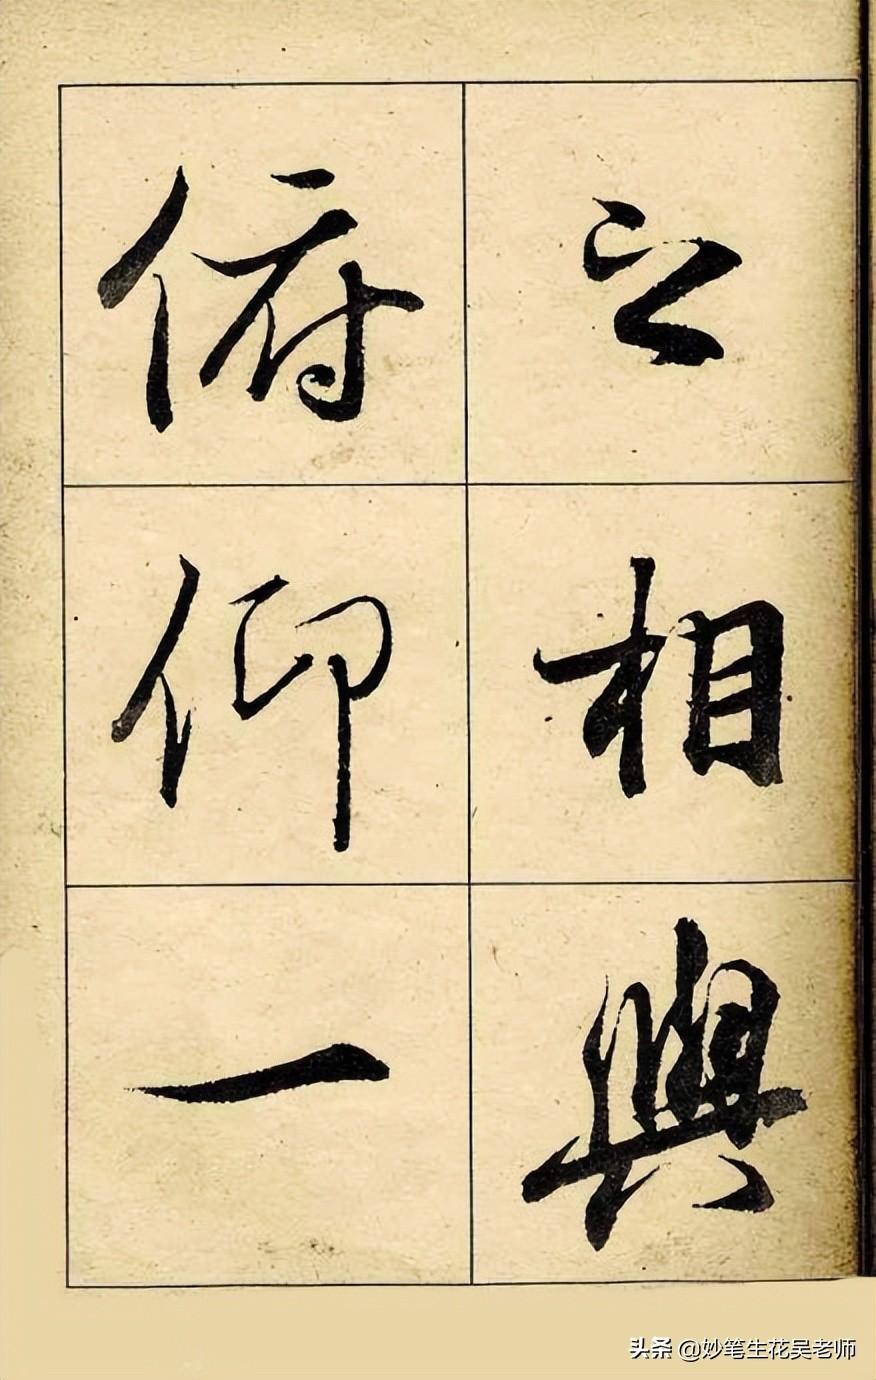 之相與
俯仰一
头条 @妙笔生花吴老师